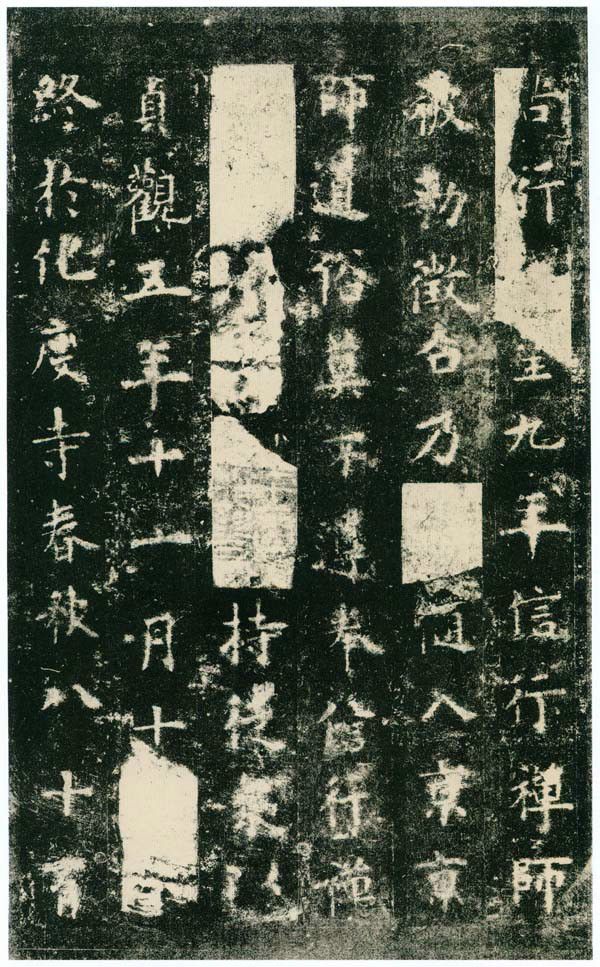 尚行 至九年信行禪師
被勅徵召乃 從入京京
師道俗莫不遵奉信行禪
持徒衆以
貞觀五年十一月十
終於化度寺春秋八十有